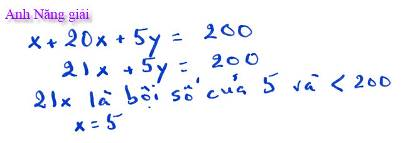 Anh Năng giải
x + 20x + 5y = 200
21x + 5y = 200
21x là bội số của 5 và < 200
x = 5